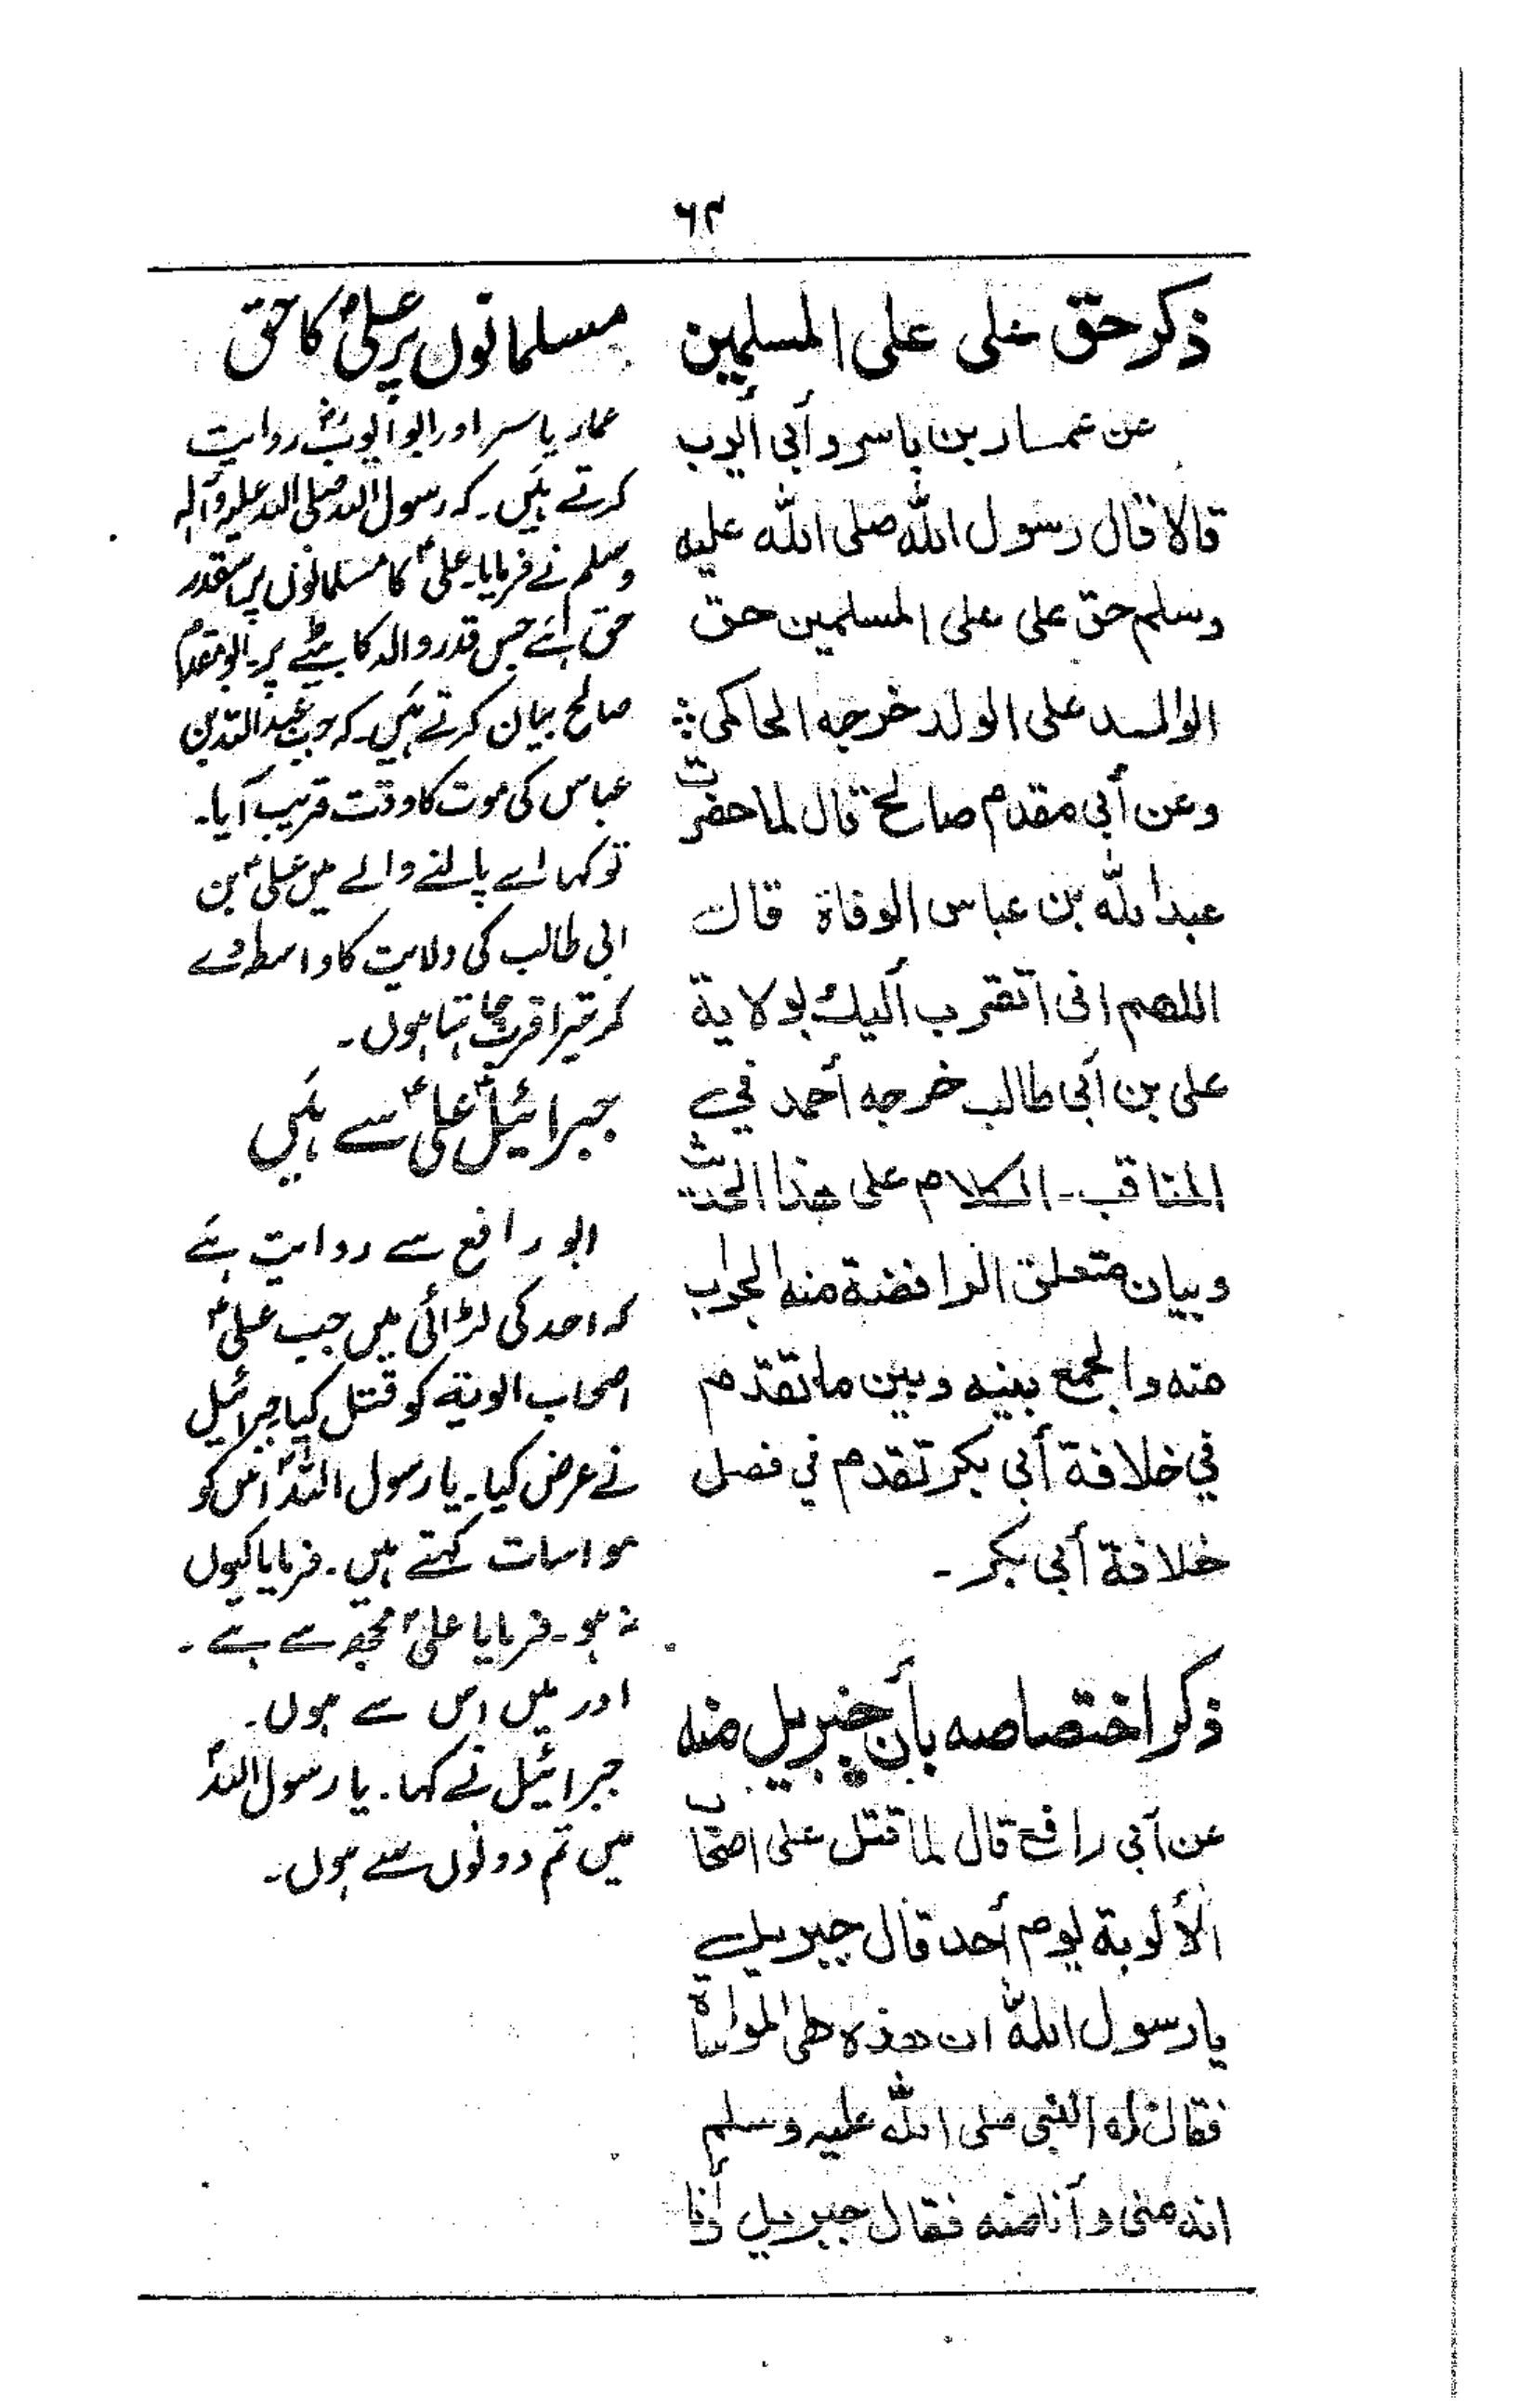 ۶۲
ذكر حق على على المسلمين
عن عمار بن ياسر وأبى أيوب
قالا قال رسول الله صلى الله عليه
وسلم حق على على المسلمين حق
الوالد على الولد خرجه الحاكمى
وعن أبى مقدم صالح قال لما حضرت
عبد الله بن عباس الوفاة قال
اللهم انى أتقرب أليك بولاية
على بن أبى طالب خرجه أحمد في
المناقب۔ الكلام على هذا الحديث
وبيان متعلق الرافضة منه الجواب
منه والجمع بينه وبين ما تقدم
في خلافة أبى بكر تقدم في فصل
خلافة أبى بكر۔
ذكر اختصاصه بأن جبريل منه
عن أبى رافع قال لما قتل على اصحاب
الألوية يوم أحد قال جبريل
يا رسول الله ان هذه لهى المواساة
فقال له النبى صلى الله عليه وسلم
انه منى وأنا منه فقال جبريل أنا
مسلمانوں پر علیؑ کا حق
عمار یاسر اور ابو ایوبؓ روایت
کرتے ہیں۔ کہ رسول اللہ صلی اللہ علیہ وآلہ
وسلم نے فرمایا۔ علیؑ کا مسلمانوں پر اسقدر
حق ہے جس قدر والد کا بیٹے پر۔ ابو مقدم
صالح بیان کرتے ہیں۔ کہ جب عبد اللہ بن
عباس کی موت کا وقت قریب آیا۔
تو کہا اے پالنے والے میں علیؑ بن
ابی طالب کی ولایت کا واسطہ دے
کر تیرا قرب چاہتا ہوں۔
جبرائیلؑ علیؑ سے ہیں
ابو رافع سے روایت ہے
کہ احد کی لڑائی میں جب علیؑ
اصحاب الویۃ کو قتل کیا جبرائیل
نے عرض کیا۔ یا رسول اللہؐ اس کو
مواسات کہتے ہیں۔ فرمایا کیوں
نہ ہو۔ فرمایا علیؑ مجھ سے ہے۔
اور میں اس سے ہوں۔
جبرائیل نے کہا۔ یا رسول اللہؐ
میں تم دونوں سے ہوں۔